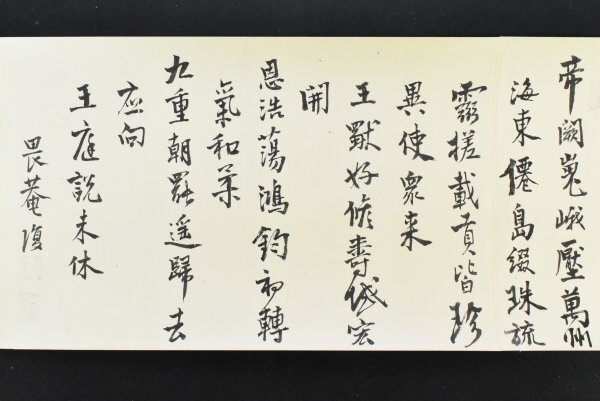 帝闕嵬峨壓萬州
海東僊島綴珠旒
霧搓載貢皆珍
異使眾来
王猷好脩壽域宏
開
恩浩蕩鴻鈞初轉
氣和柔
九重朝罷遥歸去
應向
王庭説未休
畏菴復